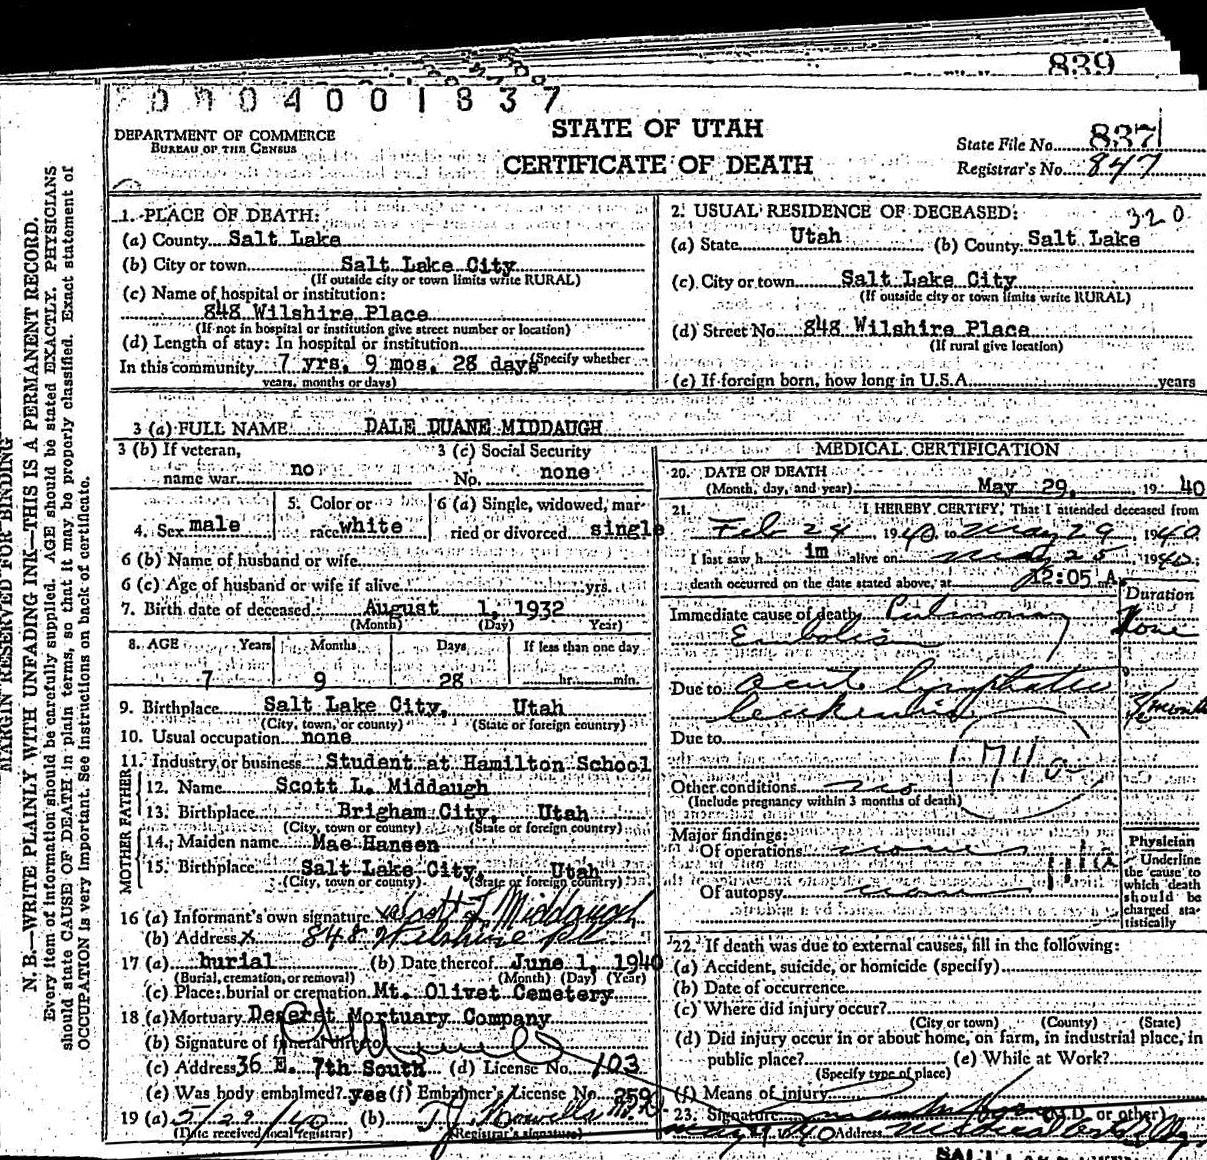 839
0 0 0 4 0 0 1 8 3 7
DEPARTMENT OF COMMERCE
BUREAU OF THE CENSUS
STATE OF UTAH
CERTIFICATE OF DEATH
State File No. 837
Registrar's No. 847
MARGIN RESERVED FOR BINDING
N. B.—WRITE PLAINLY WITH UNFADING INK—THIS IS A PERMANENT RECORD.
Every item of information should be carefully supplied. AGE should be stated EXACTLY. PHYSICIANS
should state CAUSE OF DEATH in plain terms, so that it may be properly classified. Exact statement of
OCCUPATION is very important. See instructions on back of certificate.
1. PLACE OF DEATH:
(a) County Salt Lake
(b) City or town Salt Lake City
(If outside city or town limits write RURAL)
(c) Name of hospital or institution:
848 Wilshire Place
(If not in hospital or institution give street number or location)
(d) Length of stay: In hospital or institution
In this community 7 yrs. 9 mos. 28 days (Specify whether
years, months or days)
2. USUAL RESIDENCE OF DECEASED: 320
(a) State Utah (b) County Salt Lake
(c) City or town Salt Lake City
(If outside city or town limits write RURAL)
(d) Street No. 848 Wilshire Place
(If rural give location)
(e) If foreign born, how long in U.S.A. years
3 (a) FULL NAME DALE DUANE MIDDAUGH
3 (b) If veteran, 3 (c) Social Security
name war no No. none
4. Sex male 5. Color or race white 6 (a) Single, widowed, married or divorced single
6 (b) Name of husband or wife
6 (c) Age of husband or wife if alive yrs.
7. Birth date of deceased August 1, 1932
(Month) (Day) Year)
8. AGE Years Months Days If less than one day
7 9 28 hr. min.
9. Birthplace Salt Lake City, Utah
(City, town, or county) (State or foreign country)
10. Usual occupation none
11. Industry or business Student at Hamilton School
FATHER
12. Name Scott L. Middaugh
13. Birthplace Brigham City, Utah
(City, town or county) (State or foreign country)
MOTHER
14. Maiden name Mae Hansen
15. Birthplace Salt Lake City, Utah
(City, town or county) (State or foreign country)
16 (a) Informant's own signature Scott L Middaugh
(b) Address x 848 Wilshire Pl
17 (a) burial (b) Date thereof June 1, 1940
(Burial, cremation, or removal) (Month) (Day) (Year)
(c) Place: burial or cremation Mt. Olivet Cemetery
18 (a) Mortuary Deseret Mortuary Company
(b) Signature of funeral director
(c) Address 36 E. 7th South (d) License No. 103
(e) Was body embalmed? yes (f) Embalmer's License No. 259
19 (a) 5/29/40 (b) T.J. Howells
(Date received local registrar) (Registrar's signature)
MEDICAL CERTIFICATION
20. DATE OF DEATH
(Month, day, and year) May 29, 19 40
21. I HEREBY CERTIFY, That I attended deceased from
Feb 24, 1940 to May 29, 1940
I last saw h im alive on May 25 1940;
death occurred on the date stated above, at 12:05 A.
Duration
Immediate cause of death Pulmonary
Embolis
Due to acute lymphatic
leukemia months
Due to
Other conditions no
(Include pregnancy within 3 months of death)
Major findings:
Of operations none
Of autopsy none
Physician
Underline
the cause to
which death
should be
charged sta-
tistically
22. If death was due to external causes, fill in the following:
(a) Accident, suicide, or homicide (specify)
(b) Date of occurrence
(c) Where did injury occur?
(City or town) (County) (State)
(d) Did injury occur in or about home, on farm, in industrial place, in
public place? (e) While at Work?
(Specify type of place)
(f) Means of injury
23. Signature (M.D. or other)
May 29 1940 Address Medical Arts Bldg